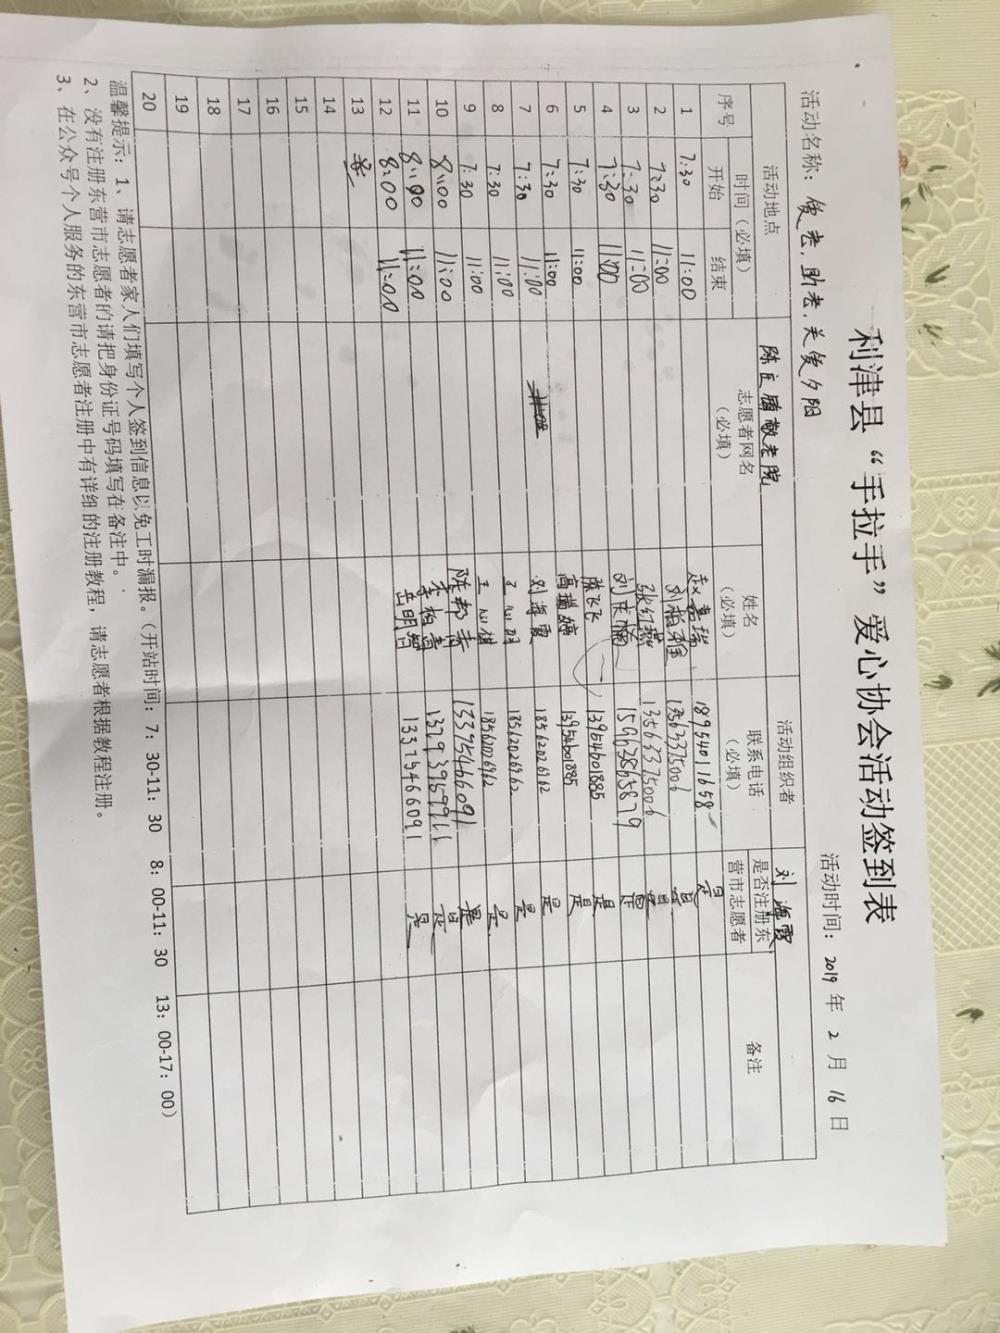 利津县“手拉手”爱心协会活动签到表
活动名称：爱老，助老，关爱夕阳 活动时间：2019年2月16日
活动地点 陈庄镇敬老院 活动组织者 刘海霞
序号 时间（必填） 开始 结束 志愿者网名（必填） 姓名（必填） 联系电话（必填） 是否注册东营市志愿者 备注
1 7:30 11:00 赵嘉瑞 18954011658 是
2 7:30 11:00 刘柏 13563375006 是
3 7:30 11:00 张红燕 13563375006 是
4 7:30 11:00 15963865879 是
5 7:30 11:00 陈飞飞 13954601885 是
6 7:30 11:00 高瑞婷 13954601885 是
7 7:30 11:00 刘海霞 18562026962 是
8 7:30 11:00 王心羽 18562026962 是
9 7:30 11:00 王心祺 18562026962 是
10 8:00 11:00 陈 13375466091 是
11 8:00 11:00 李柏 是
12 8:00 11:00 岳明 13375466091 是
13
14
15
16
17
18
19
20
温馨提示：1、请志愿者家人们填写个人签到信息以免工时漏报。（开站时间：7：30-11：30 8：00-11：30 13：00-17：00）
2、没有注册东营市志愿者的请把身份证号码填写在备注中。
3、在公众号个人服务的东营市志愿者注册中有详细的注册教程，请志愿者根据教程注册。